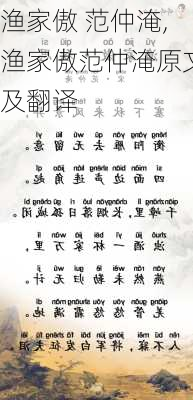 渔家傲 范仲淹,
渔家傲范仲淹原文
及翻译
塞下秋来
héng yáng yàn qù wú liú yì
衡阳雁去无留意。
sì miàn biān shēng lián jiǎo qǐ
四面边声连角起。
千嶂里，长烟落日孤城闭。
浊酒一杯家万里，
燕然未勒归无计。
羌管悠悠霜满地。
人不寐，将军白发征夫泪。